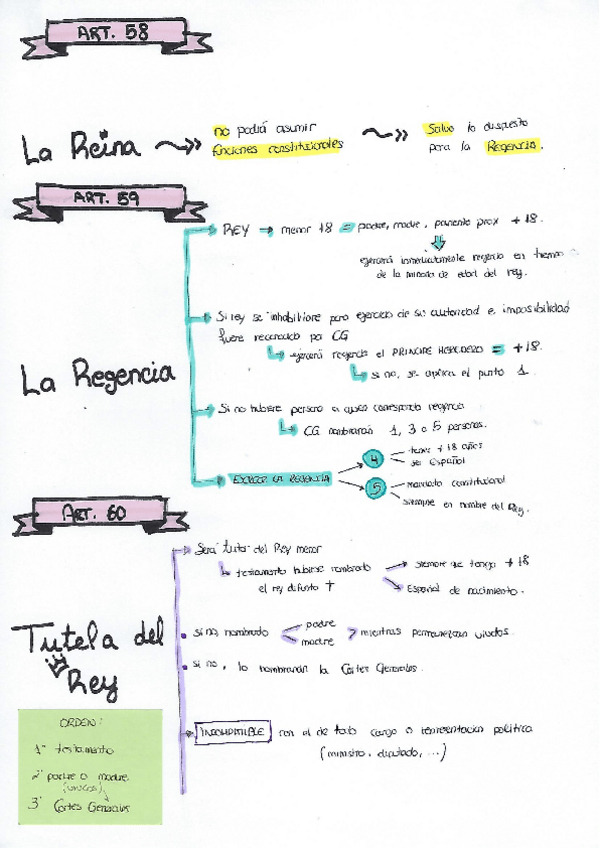 ART. 58
La Reina
no podrá asumir
funciones constitucionales
Salvo lo dispuesto
para la Regencia.
ART. 59
La Regencia
REY → menor 18 = padre, madre, pariente prox +18.
ejercerá inmediatamente regencia en tiempo
de la minoria de edad del rey.
Si rey se inhabilitare para ejercicio de su autoridad e imposibilidad
fuere reconocida por CG
ejercerá regencia el PRINCIPE HEREDERO = +18.
si no, se aplica el punto 1.
Si no hubiere persona a quien corresponda regencia
CG nombrarán 1, 3 o 5 personas.
EJERCER LA REGENCIA
4
tener +18 años
ser Español
5
mandato constitucional
siempre en nombre del Rey.
ART. 60
Tutela del
Rey
Será tutor del Rey menor
testamento hubiese nombrado
el rey difunto †
siempre que tenga +18
Español de nacimiento.
si no, nombrado
padre
madre
mientras permanezcan viudos.
si no, lo nombrarán la Cortes Generales.
INCOMPATIBLE con el de todo cargo o representación política
(ministro, diputado, ...)
ORDEN:
1º testamento
2º padre o madre
(viudos)
3º Cortes Generales